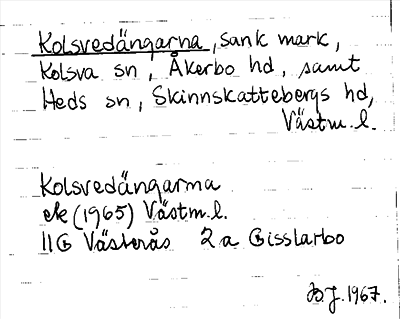 Kolsvedängarna, sank mark,
Kolsva sn, Åkerbo hd, samt
Heds sn, Skinnskattebergs hd,
Västm.l.
Kolsvedängarma
ek (1965) Västm.l.
11G Västerås 2a Gisslarbo
BJ. 1967.